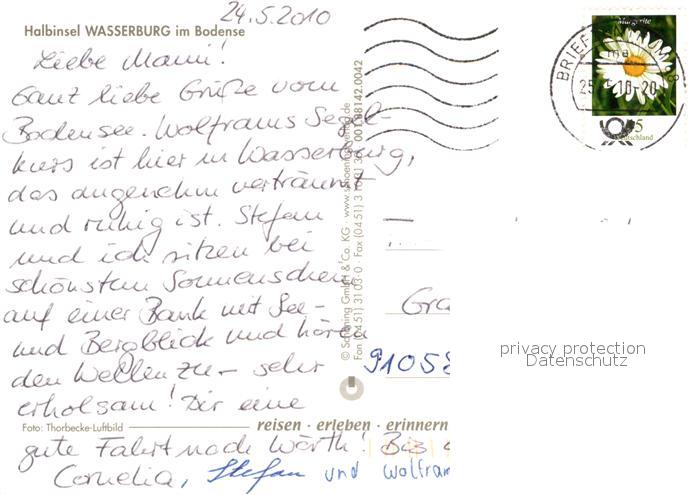 24.5.2010
Halbinsel WASSERBURG im Bodensee
Liebe Mami!
Ganz liebe Grüße vom
Bodensee. Wolframs Segel-
kurs ist hier in Wasserburg,
das angenehm verträumt
und ruhig ist. Stefan
und ich sitzen bei
schönstem Sonnenschein
auf einer Bank mit See-
und Bergblick und hören
den Wellen zu - sehr
erholsam! Dir eine
gute Fahrt nach Wörth! Bis
Cornelia, Stefan und Wolfram
Foto: Thorbecke-Luftbild
reisen · erleben · erinnern
© Schöning GmbH & Co. KG · www.schoening-verlag.de
Fon (04 51) 31 03 0 · Fax (04 51)
0042
Margerite
Deutschland
BRIEF
25. 10-20
Gra
91058
privacy protection
Datenschutz